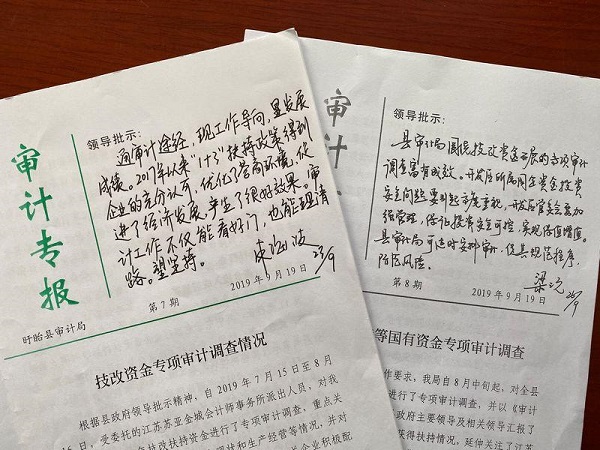 审计专报
领导批示：
通审计途经，现工作导向，显发展
成绩。2017年以来"1+3"扶持政策得到
企业的充分认可，优化了营商环境，促
进了经济发展，产生了很好效果。审
计工作不仅能看好门，也能理清
路。望坚持。
23/9
第7期
2019年9月19日
盱眙县审计局
技改资金专项审计调查情况
根据县政府领导批示精神，自2019年7月15日至8月
日，受委托的江苏苏亚金城会计师事务所派出人员，对我
技改扶持资金进行了专项审计调查，重点关
和生产经营等情况，并对
企业积极配
审计
领导批示：
县审计局围绕技改资金开展的专项审计
调查富有成效。开发区所属国企资金投资
安全问题要引起高度重视，开发区管委会要加
强管理，保证投资安全可控，实现保值增值。
县审计局可适时安排审计，促其规范程序，
防范风险。
第8期
2019年9月19日
等国有资金专项审计调查
作要求，我局自8月中旬起，对全县
进行了专项审计调查，并以《审计
政府主要领导及相关领导汇报了
获得扶持情况，延伸关注了江苏